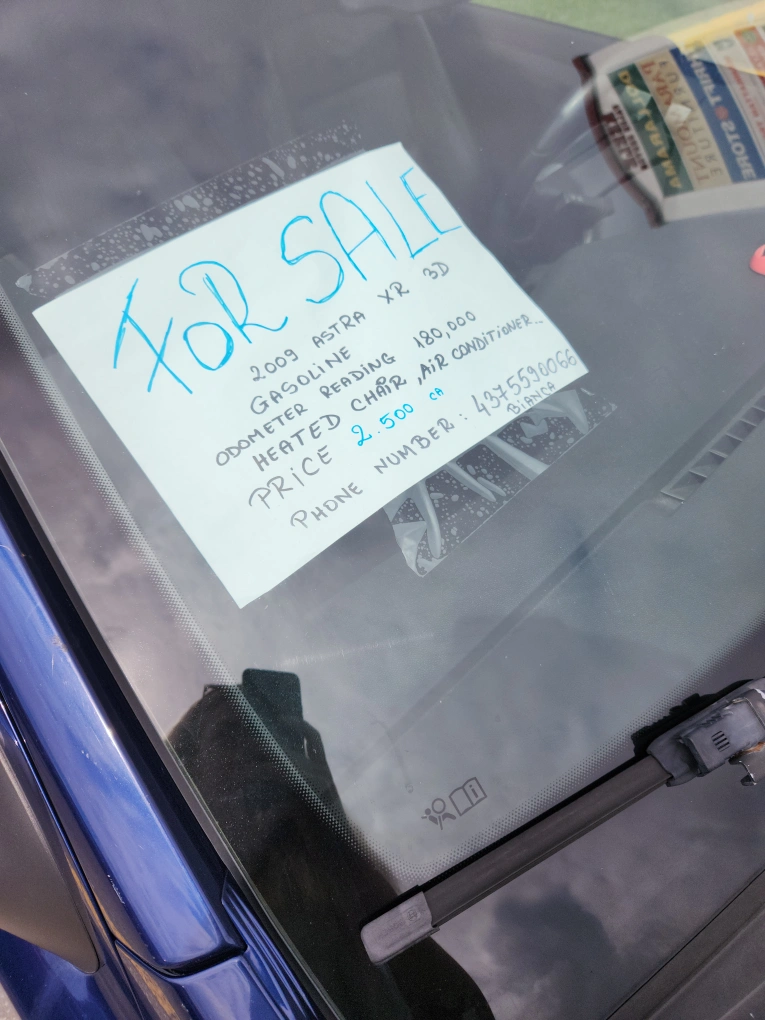 FOR SALE
2009 ASTRA XR 3D
GASOLINE
ODOMETER READING 180,000
HEATED CHAIR, AIR CONDITIONER...
PRICE 2.500 CA
PHONE NUMBER: 4375590066
BIANCA